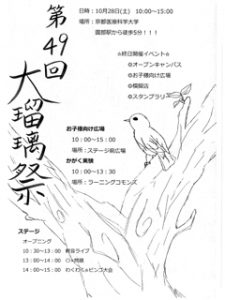 第49回
大瑠璃祭
日時:10月28日(土) 10:00~15:00
場所:京都医療科学大学
園部駅から徒歩5分!!!
☆終日開催イベント
✿オープンキャンパス
✿お子様向け広場
✿模擬店
✿スタンプラリー
お子様向け広場
10:00~15:00
場所:ステージ前広場
かがく実験
10:00~13:30
場所:ラーニングコモンズ
ステージ
オープニング
10:30~13:00 軽音ライブ
13:00~14:00 〇×問題
14:00~15:00 わくわく♬ビンゴ大会